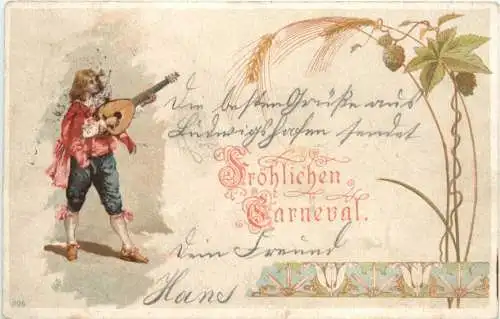 Die besten Grüße aus
Ludwigshafen sendet
Fröhlichen
Carneval.
Dein Freund
Hans